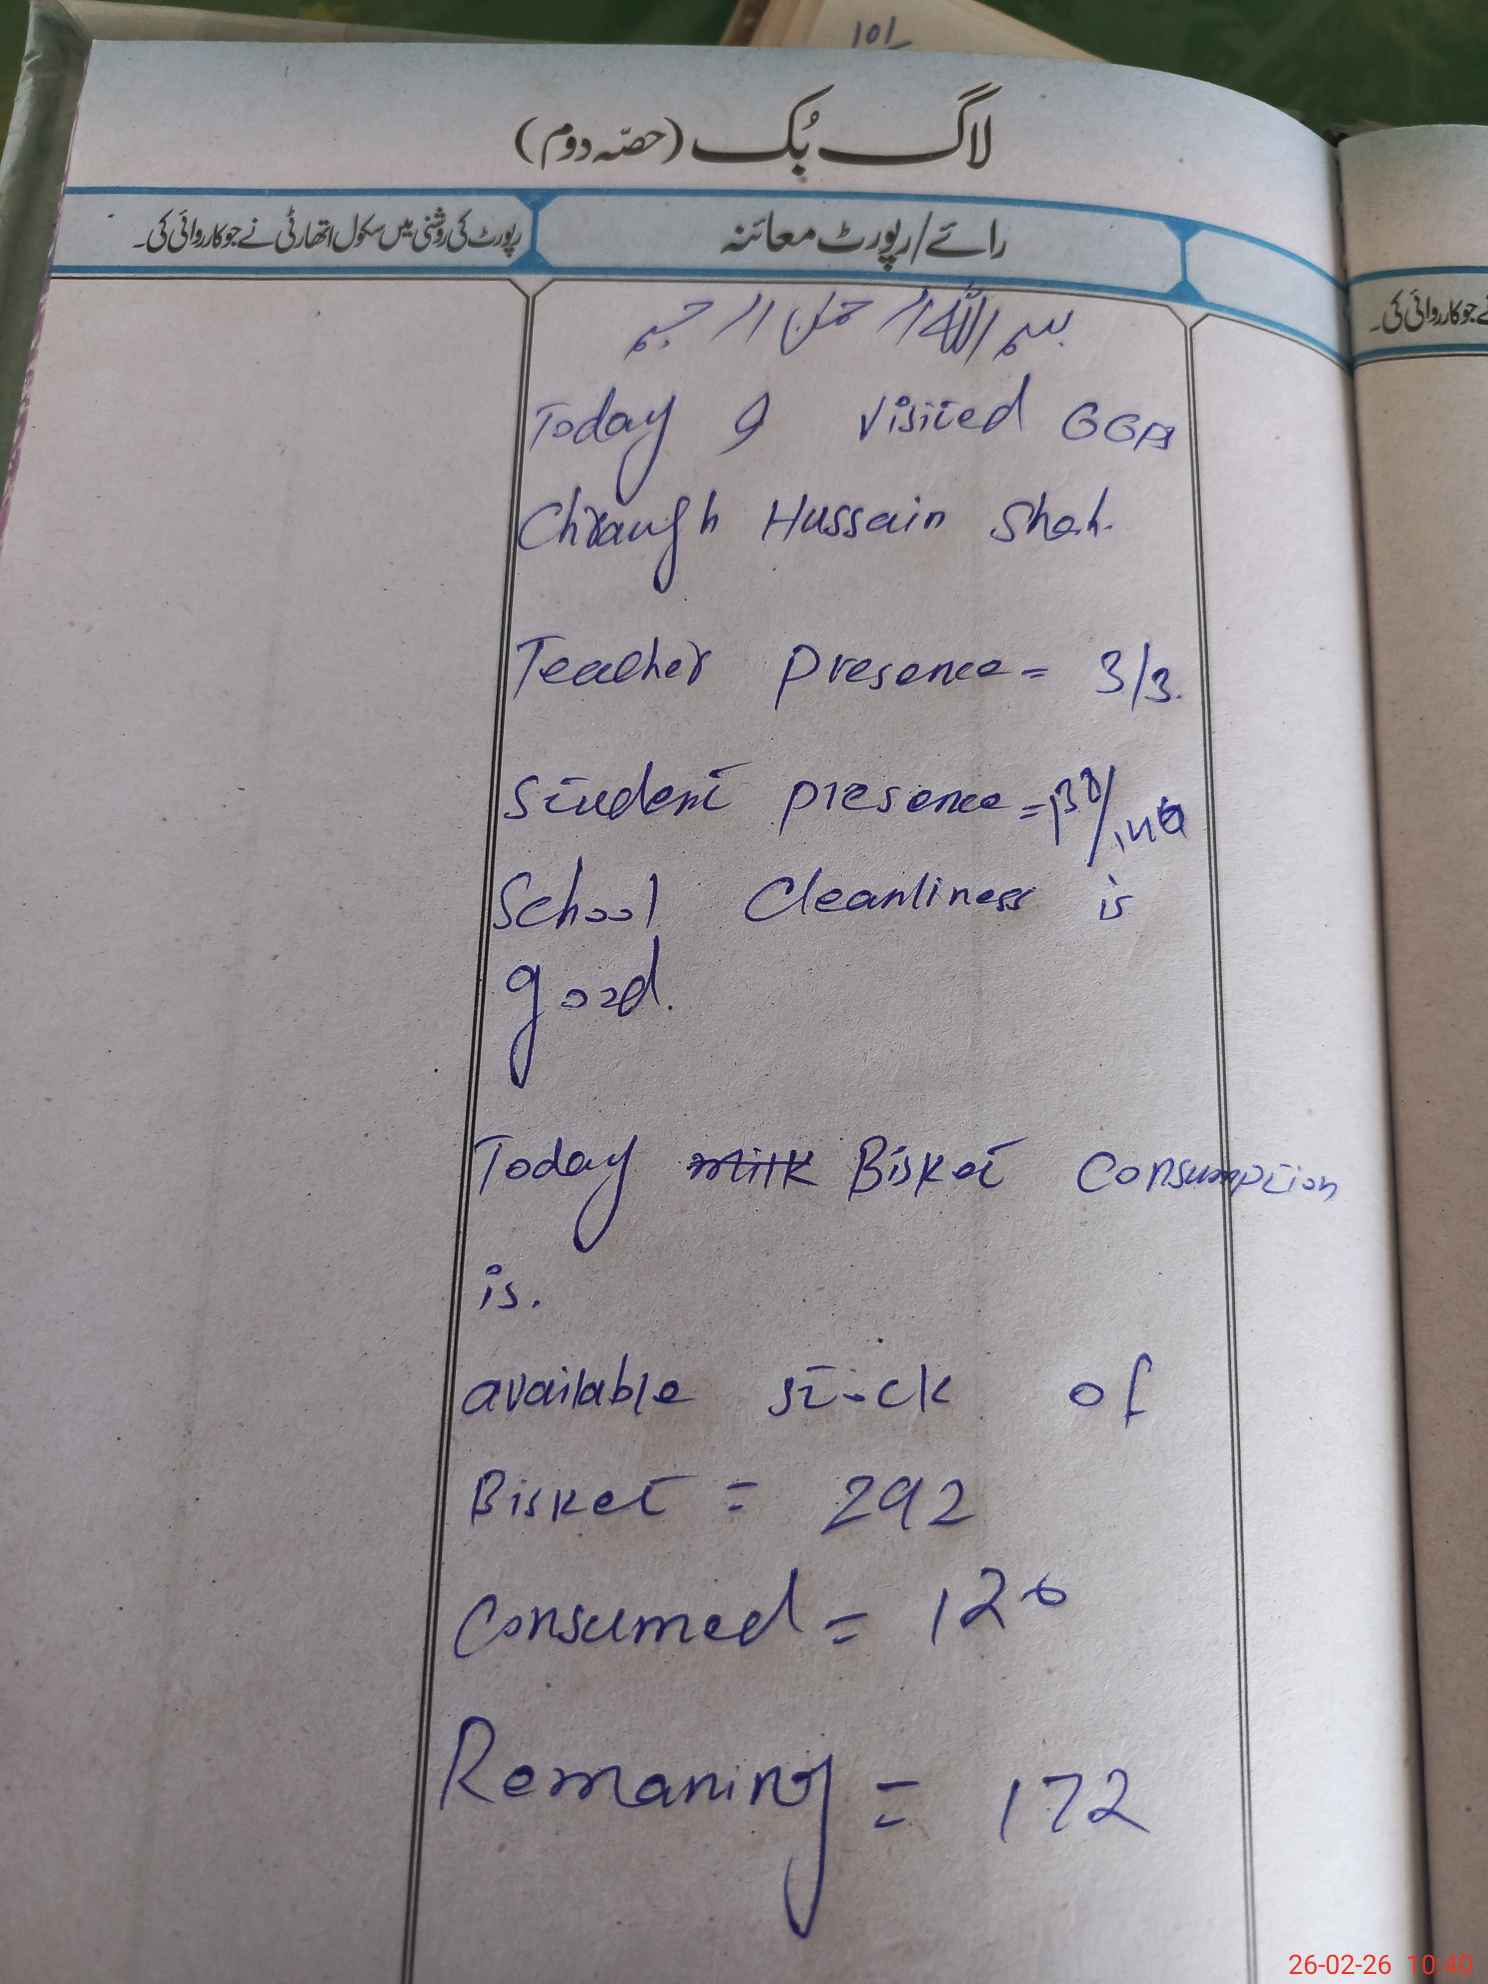 101
لاگ بُک (حصّہ دوم)
رائے/رپورٹ معائنہ
رپورٹ کی روشنی میں سکول اتھارٹی نے جو کارروائی کی۔
نے جو کارروائی کی۔
بسم اللہ الرحمن الرحیم
Today I visited GGPS
Chraugh Hussain Shah.
Teacher presence = 3/3.
Student presence =
School Cleanliness is
good.
Today milk Bisket Consumption
is.
available stock of
Bisket = 292
Consumed = 120
Remaning = 172
26-02-26 10:40